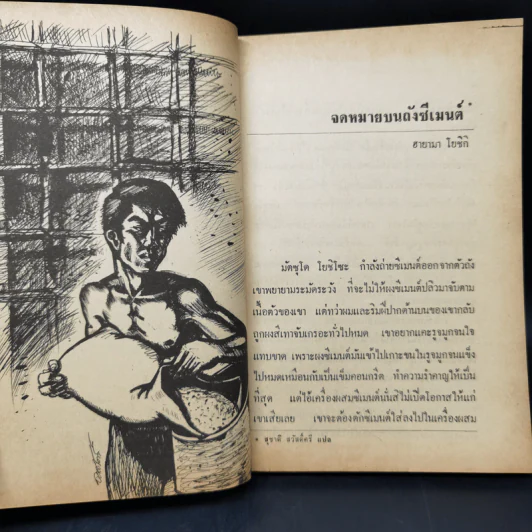 จดหมายบนถังซีเมนต์ *
ฮายามา โยชิกิ
มัตซุโด โยชิโซะ กำลังถ่ายซีเมนต์ออกจากตัวถัง
เขาพยายามระมัดระวัง ที่จะไม่ให้ผงซีเมนต์ปลิวมาจับตาม
เนื้อตัวของเขา แต่ทว่าผมและริมฝีปากด้านบนของเขากลับ
ถูกผงสีเทาจับเกรอะทั่วไปหมด เขาอยากแคะรูจมูกจนใจ
แทบขาด เพราะผงซีเมนต์มันเข้าไปเกาะขนในรูจมูกจนแข็ง
ไปหมดเหมือนกับเป็นเข็มคอนกรีต ทำความรำคาญให้เป็น
ที่สุด แต่ไอ้เครื่องผสมซีเมนต์นั่นสิไม่เปิดโอกาสให้แก่
เขาเสียเลย เขาจะต้องตักซีเมนต์ใส่ลงไปในเครื่องผสม
* สุชาติ สวัสดิ์ศรี แปล